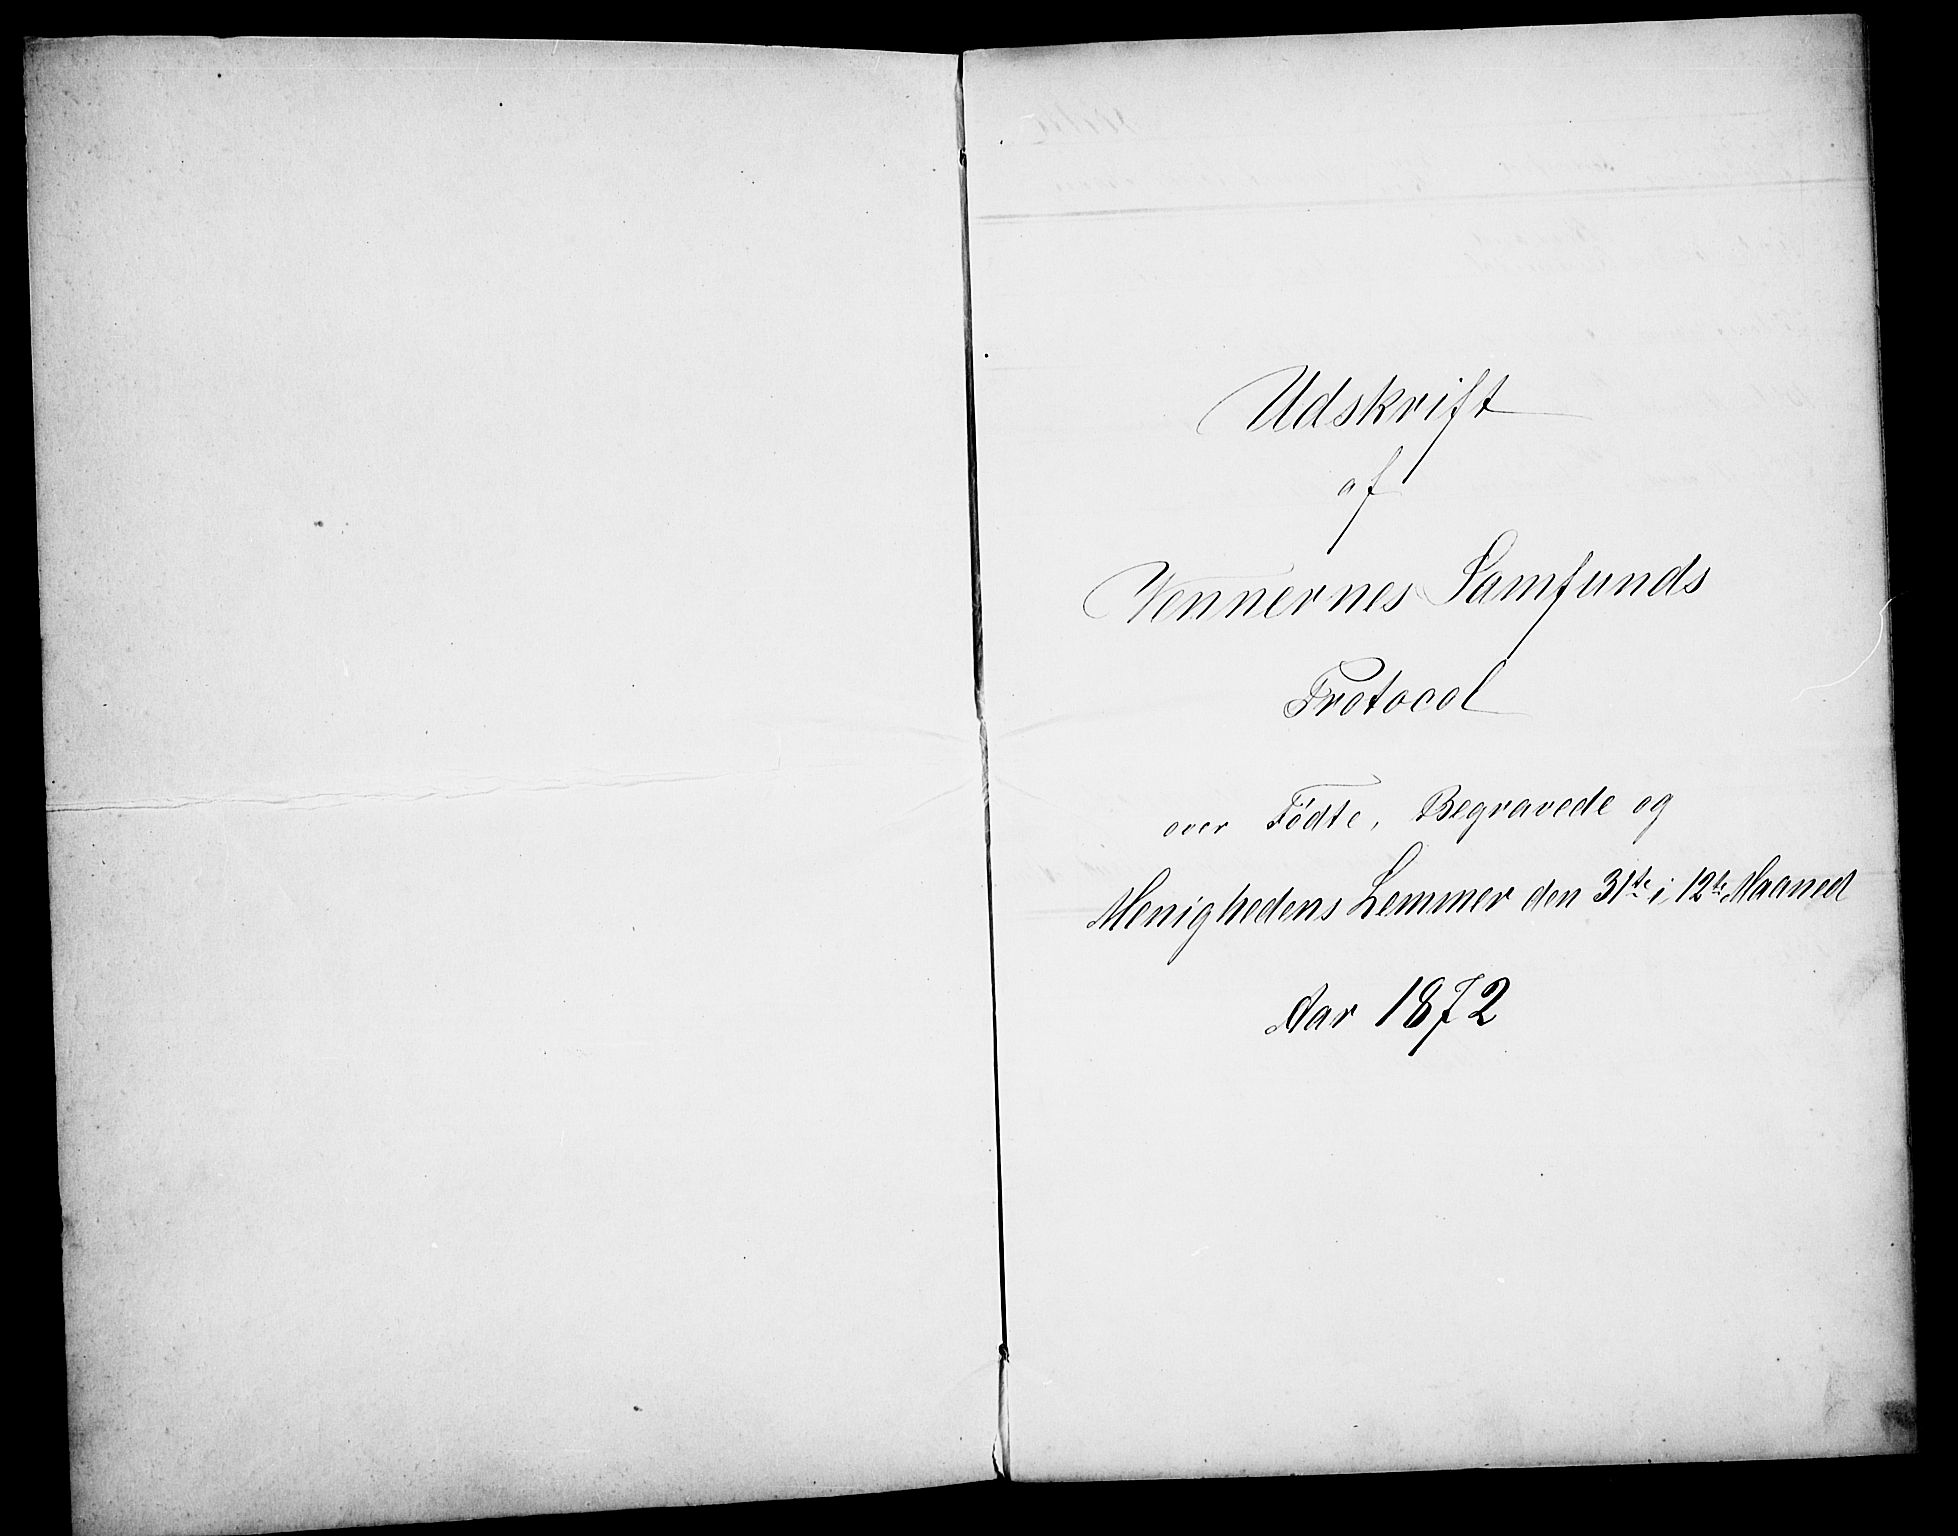 Udskrift
af
Vennernes Samfunds
Protocol
over Fødte, Begravede og
Menighedens Lemmer den 31te i 12te Maaned
Aar 1872